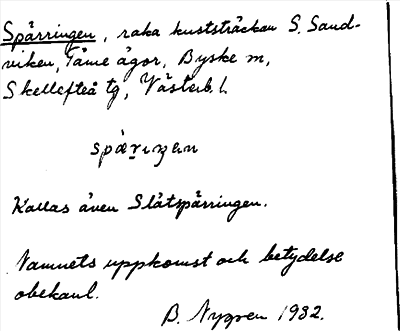 Spärringen, raka kuststräckan S. Sand-
viken, Tåme ägor, Byske sn,
Skellefteå tg, Västerb. l.
Kallas även Slätspärringen.
Namnets uppkomst och betydelse
obekant.
B. Nygren 1932.